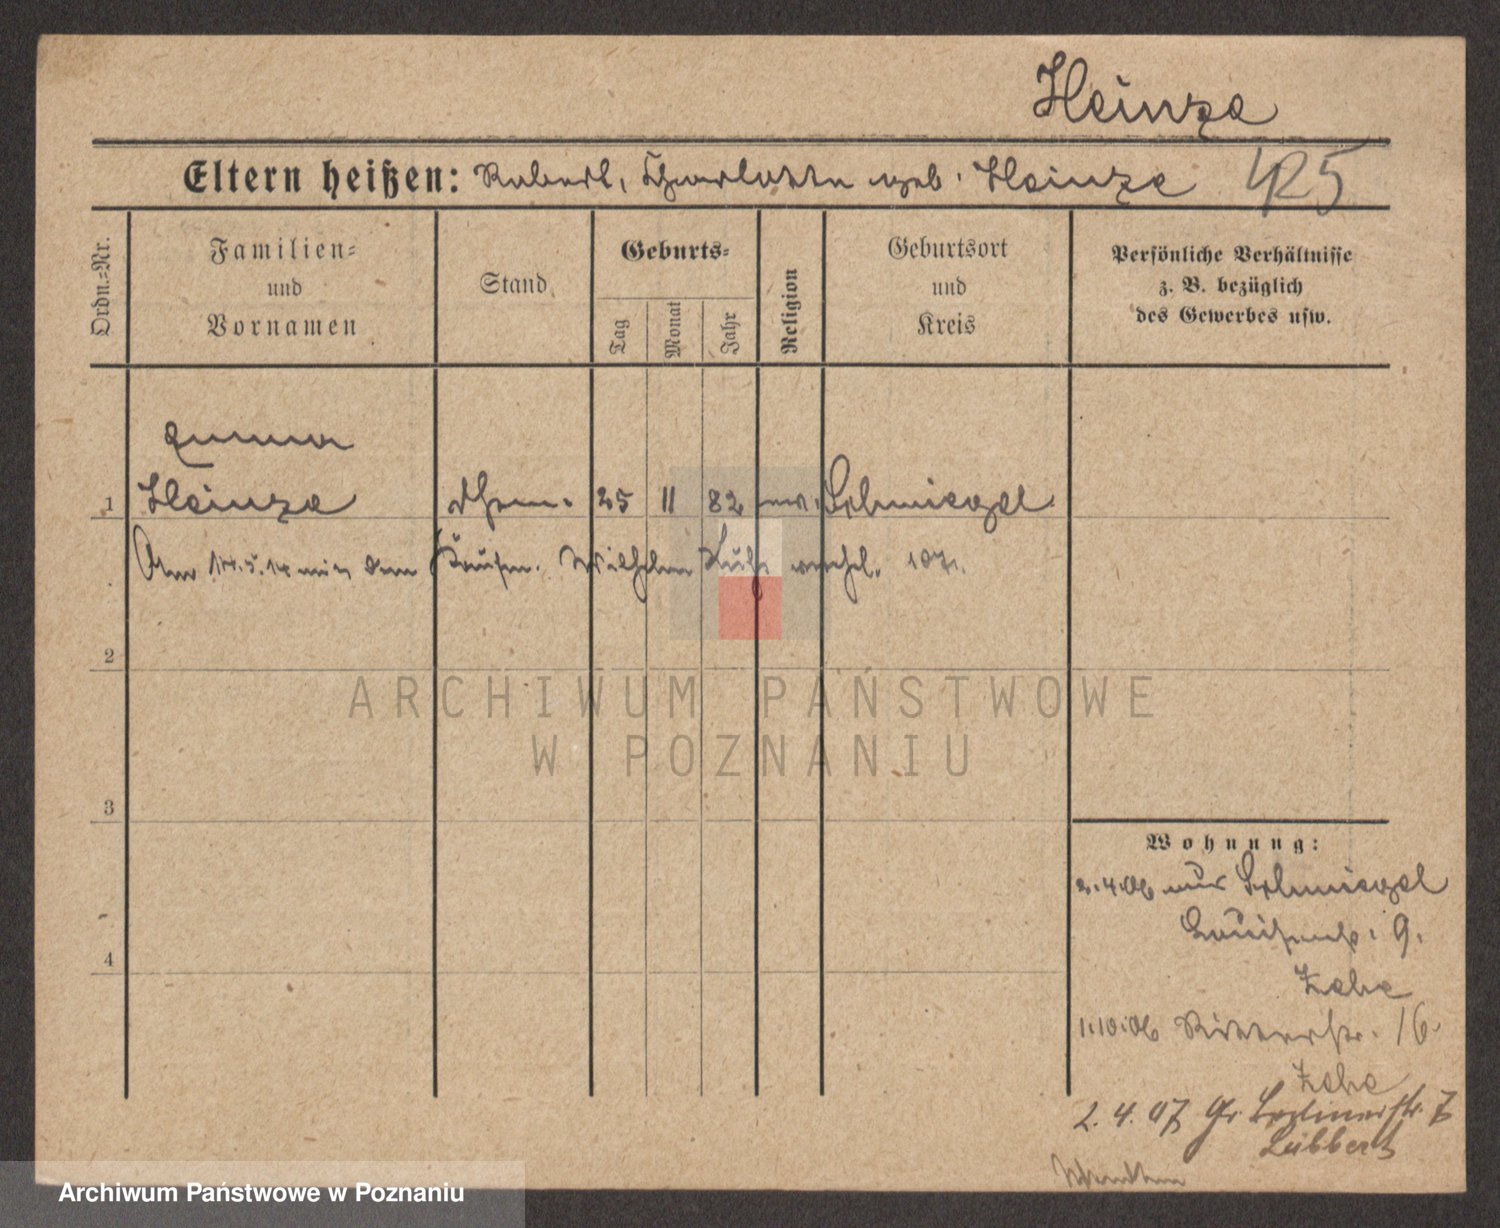 Heinze
Eltern heißen: Robert, Charlotte geb. Heinze 425
Ordn.=Nr.
Familien=
und
Vornamen
Stand
Geburts=
Tag
Monat
Jahr
Religion
Geburtsort
und
Kreis
Persönliche Verhältnisse
z. B. bezüglich
des Gewerbes usw.
Emma
1 Heinze 25 11 82 ev. Schmiegel
Am mit dem Wilhelm verehel.
2
ARCHIWUM PAŃSTWOWE
W POZNANIU
3
Wohnung:
2.4.06 aus Schmiegel
Louisenstr. 9.
1.10.06 Ritterstr. 16.
2.4.07 Gr. Berlinerstr. 7
Lübbert
4
Archiwum Państwowe w Poznaniu